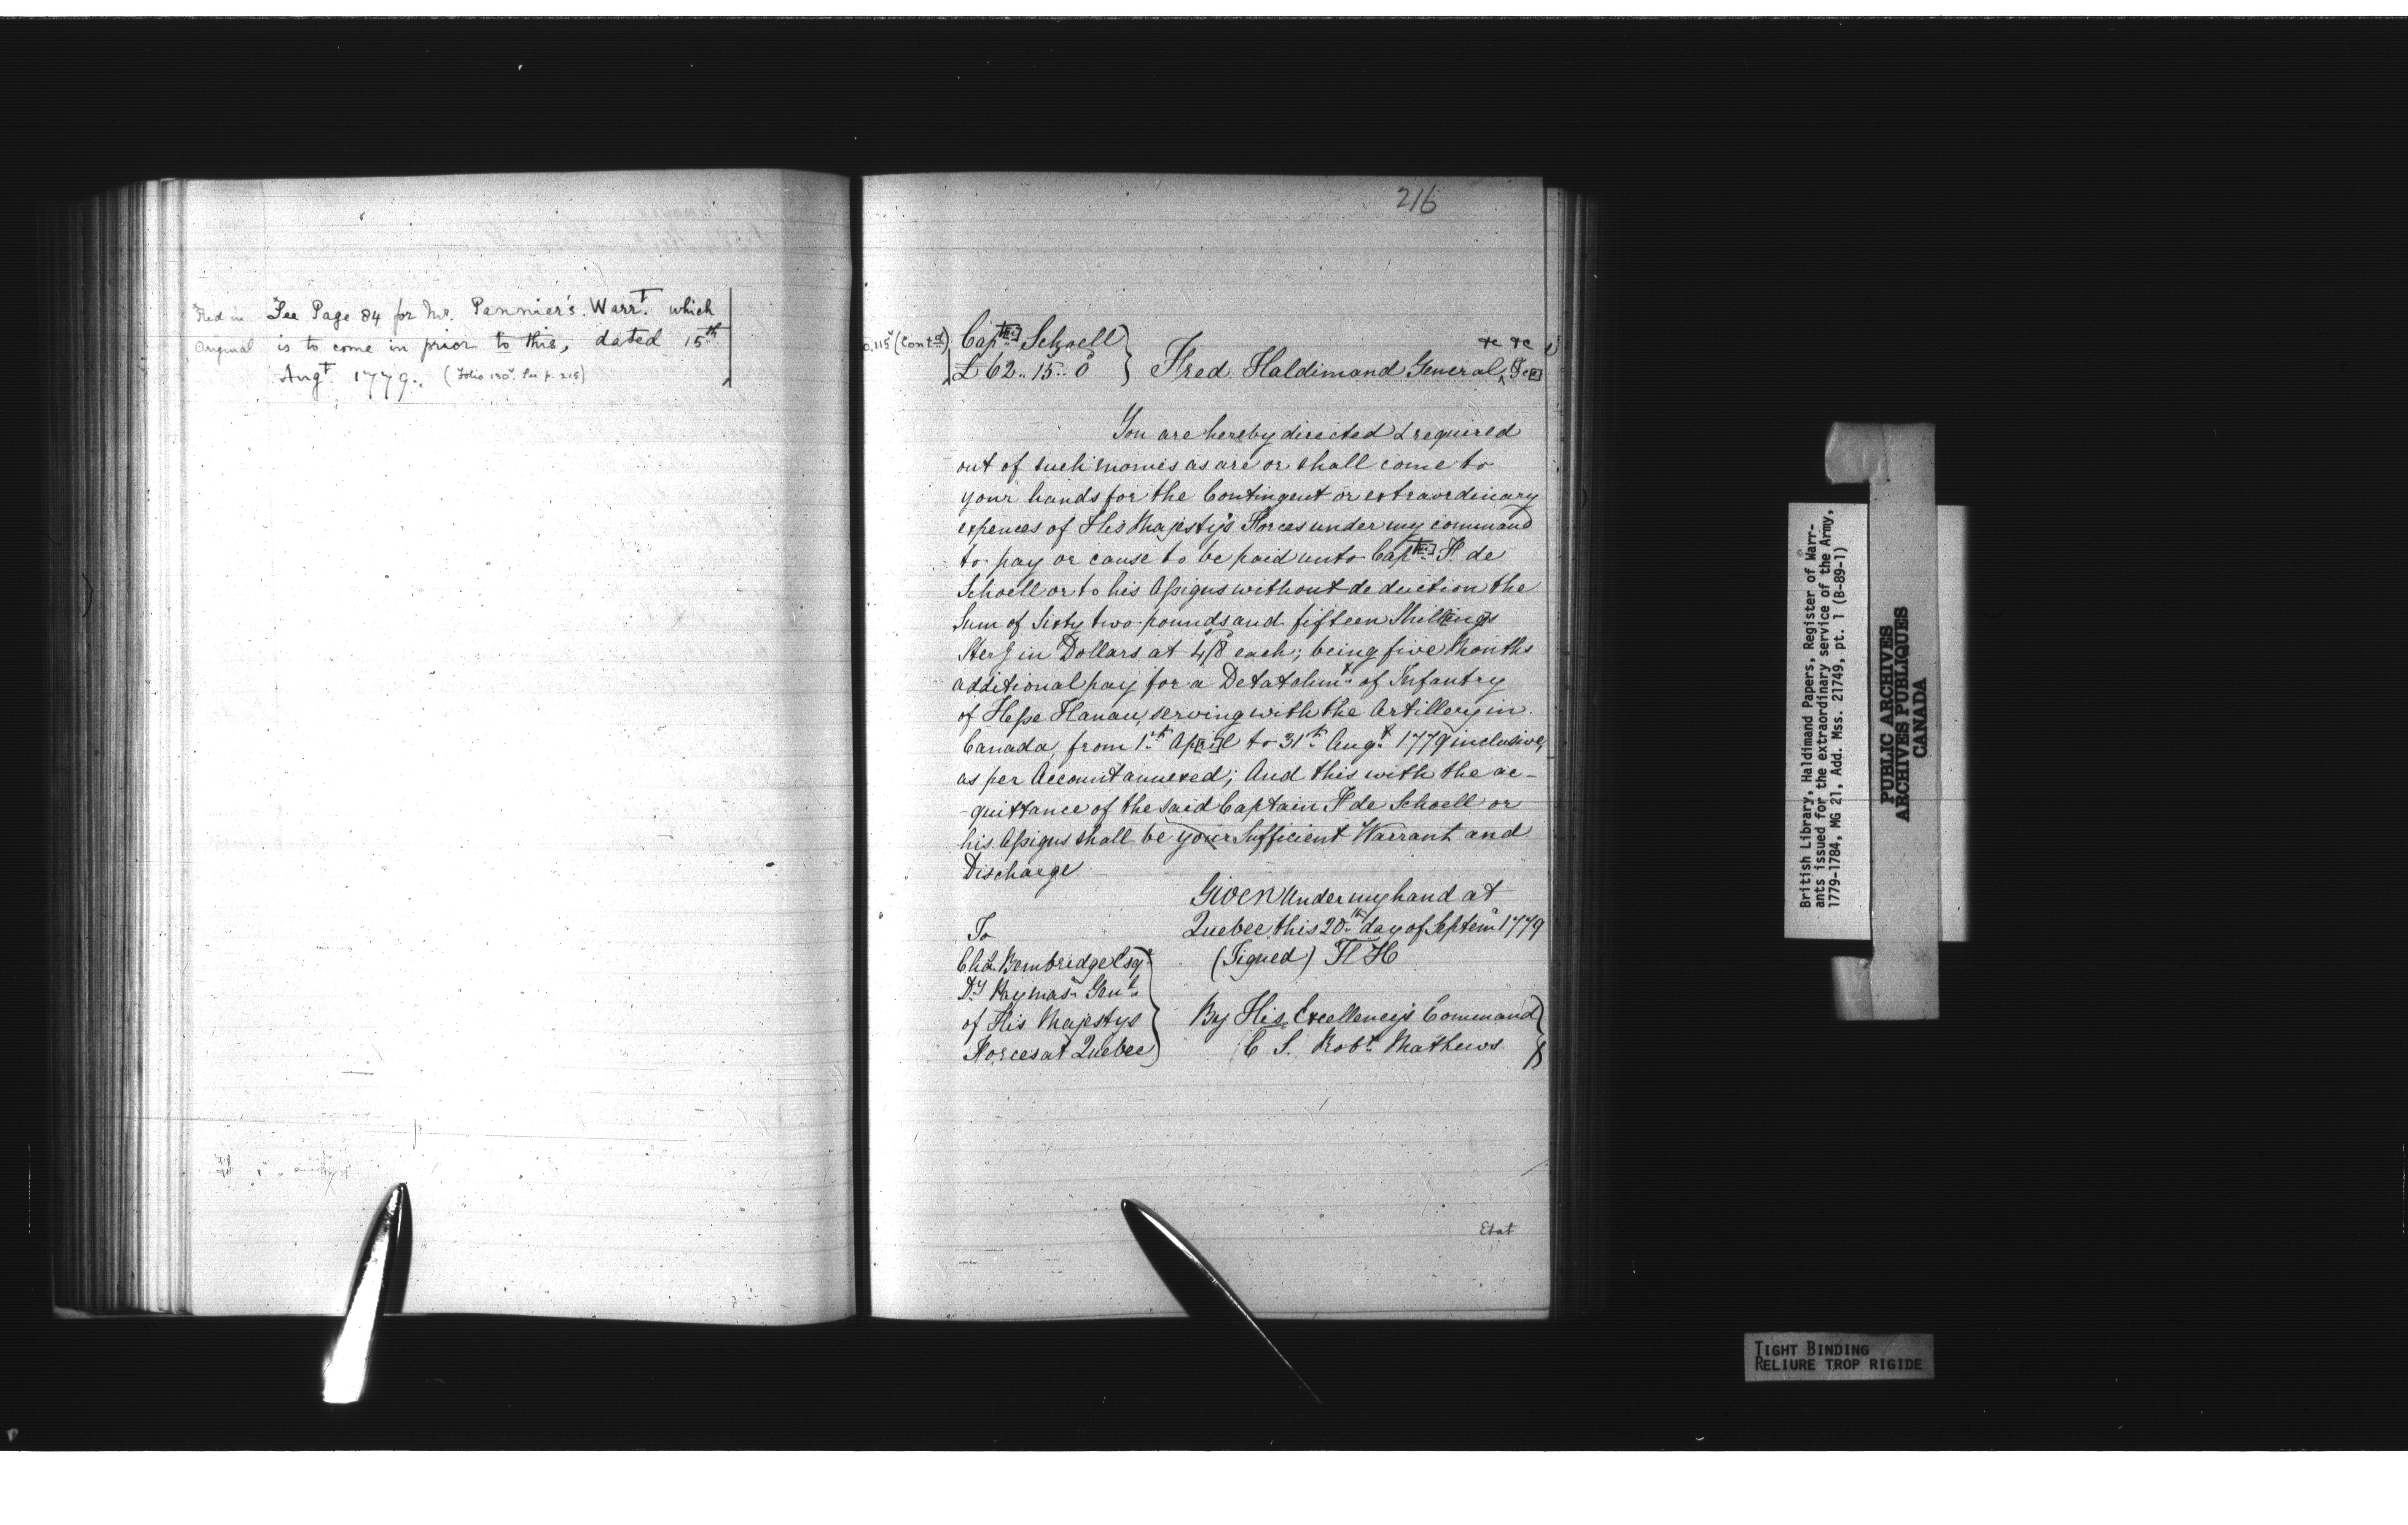 Red in
Original
See Page 84 for Mr. Pannier's Warrt. which
is to come in prior to this, dated 15th
Augt. 1779.. (Folio 130v. See p. 215)
216
o.115v (Contd)
Captn. Schoell
£ 62.. 15.. 0
Fred. Haldimand General, &c &c &c
You are hereby directed & required
out of such monies as are or shall come to
your hands for the Contingent or extraordinary
expences of His Majesty's Forces under my command
to pay or cause to be paid unto Captn. F. de
Schoell or to his Assigns without deduction the
Sum of Sixty two pounds and fifteen Shillings
Sterg in Dollars at 4/8 each; being five Months
additional pay for a Detatchmt. of Infantry
of Hesse Hanau, serving with the Artillery in
Canada, from 1st April to 31st Augt. 1779 inclusive,
as per Account annexed; And this with the ac-
-quittance of the said Captain F de Schoell or
his Assigns shall be your Sufficient Warrant and
Discharge
Given Under my hand at
Quebec this 20th day of Septemr 1779
(Signed) F H
To
Chas. Bembridge Esqr
Dy Paymasr Genl.
of His Majestys
Forces at Quebec
By His Excellency's Command
C S. Robt. Mathews
Etat
British Library, Haldimand Papers, Register of Warr-
ants issued for the extraordinary service of the Army,
1779-1784, MG 21, Add. Mss. 21749, pt. 1 (B-89-1)
PUBLIC ARCHIVES
ARCHIVES PUBLIQUES
CANADA
TIGHT BINDING
RELIURE TROP RIGIDE